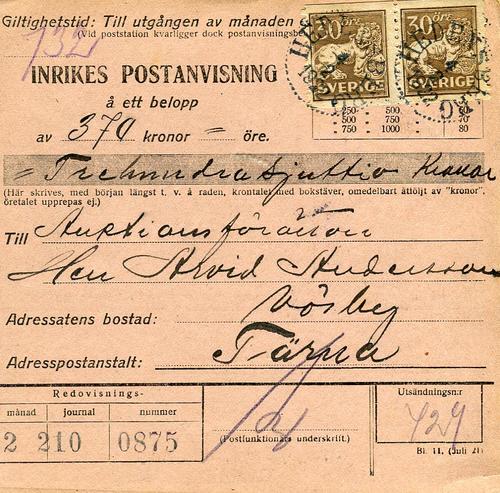 Giltighetstid: Till utgången av månaden
(Vid poststation kvarligger dock postanvisningsbe
732
30 öre 30 öre
SVERIGE SVERIGE
INRIKES POSTANVISNING
å ett belopp
250 500 60
500 750 70
750 1000 80
av 370 kronor = öre.
= Trehundrasjuttio Kronor
(Här skrives, med början längst t. v. å raden, krontalet med bokstäver, omedelbart åtföljt av "kronor",
öretalet upprepas ej.)
Till Auktionsförrättaren
Herr Arvid Andersson
Adressatens bostad: Vösby
Adresspostanstalt: Tärna
Redovisnings-
månad journal nummer
2 210 0875
(Postfunktionärs underskrift.)
Utsändningsn:r
729
Bl. 11. (Juli 21)